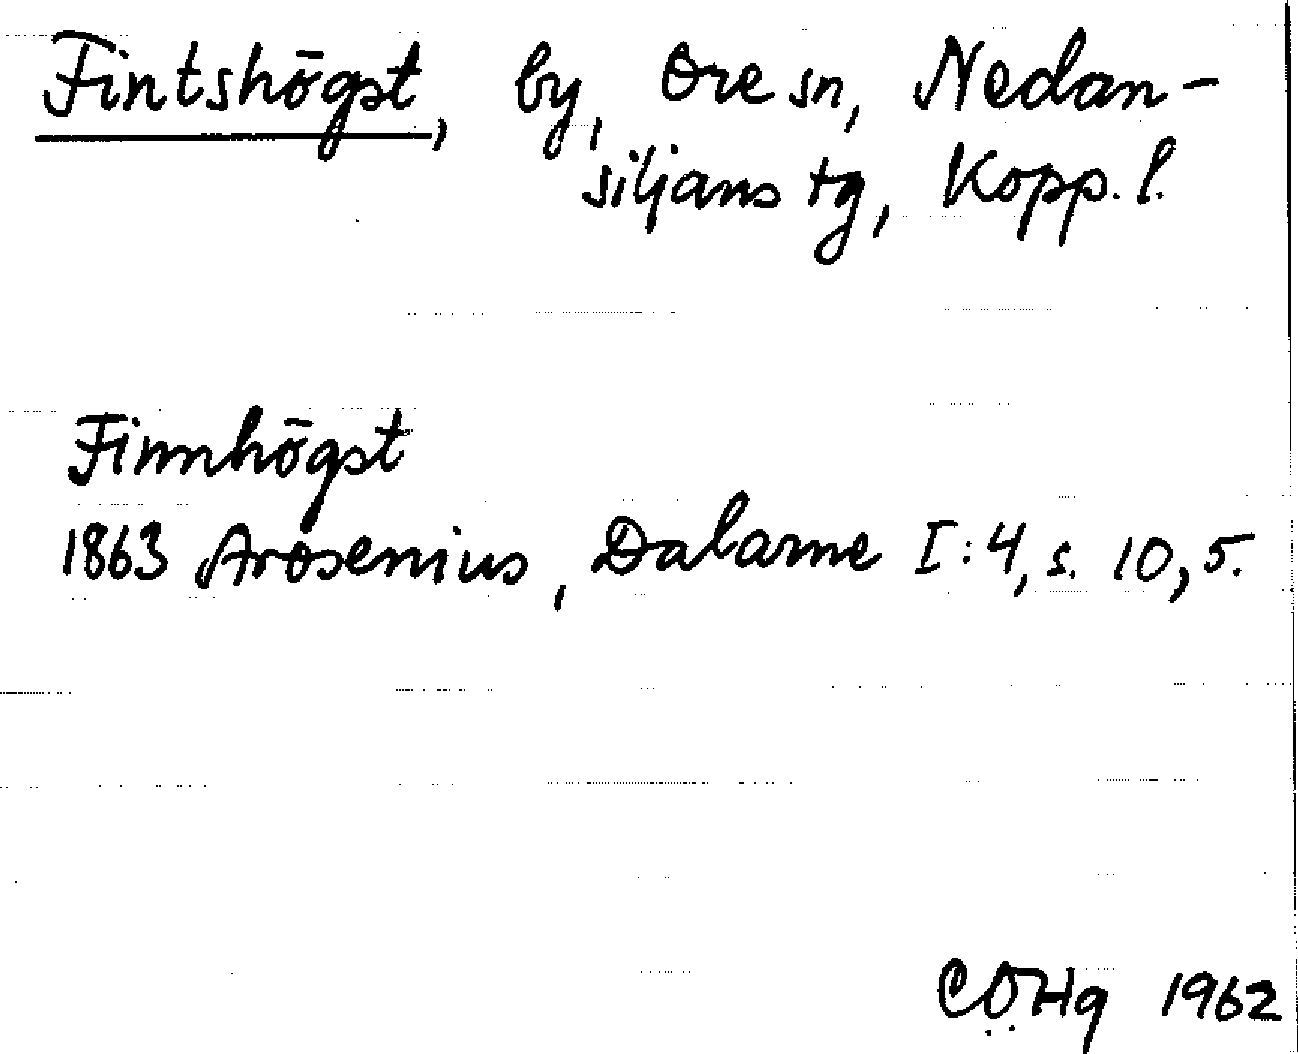 Fintshögst, by, Ore sn, Nedan-
siljans tg, Kopp. l.
Finnhögst
1863 Arosenius, Dalarne I:4, s. 10, 5.
CÖHg 1962